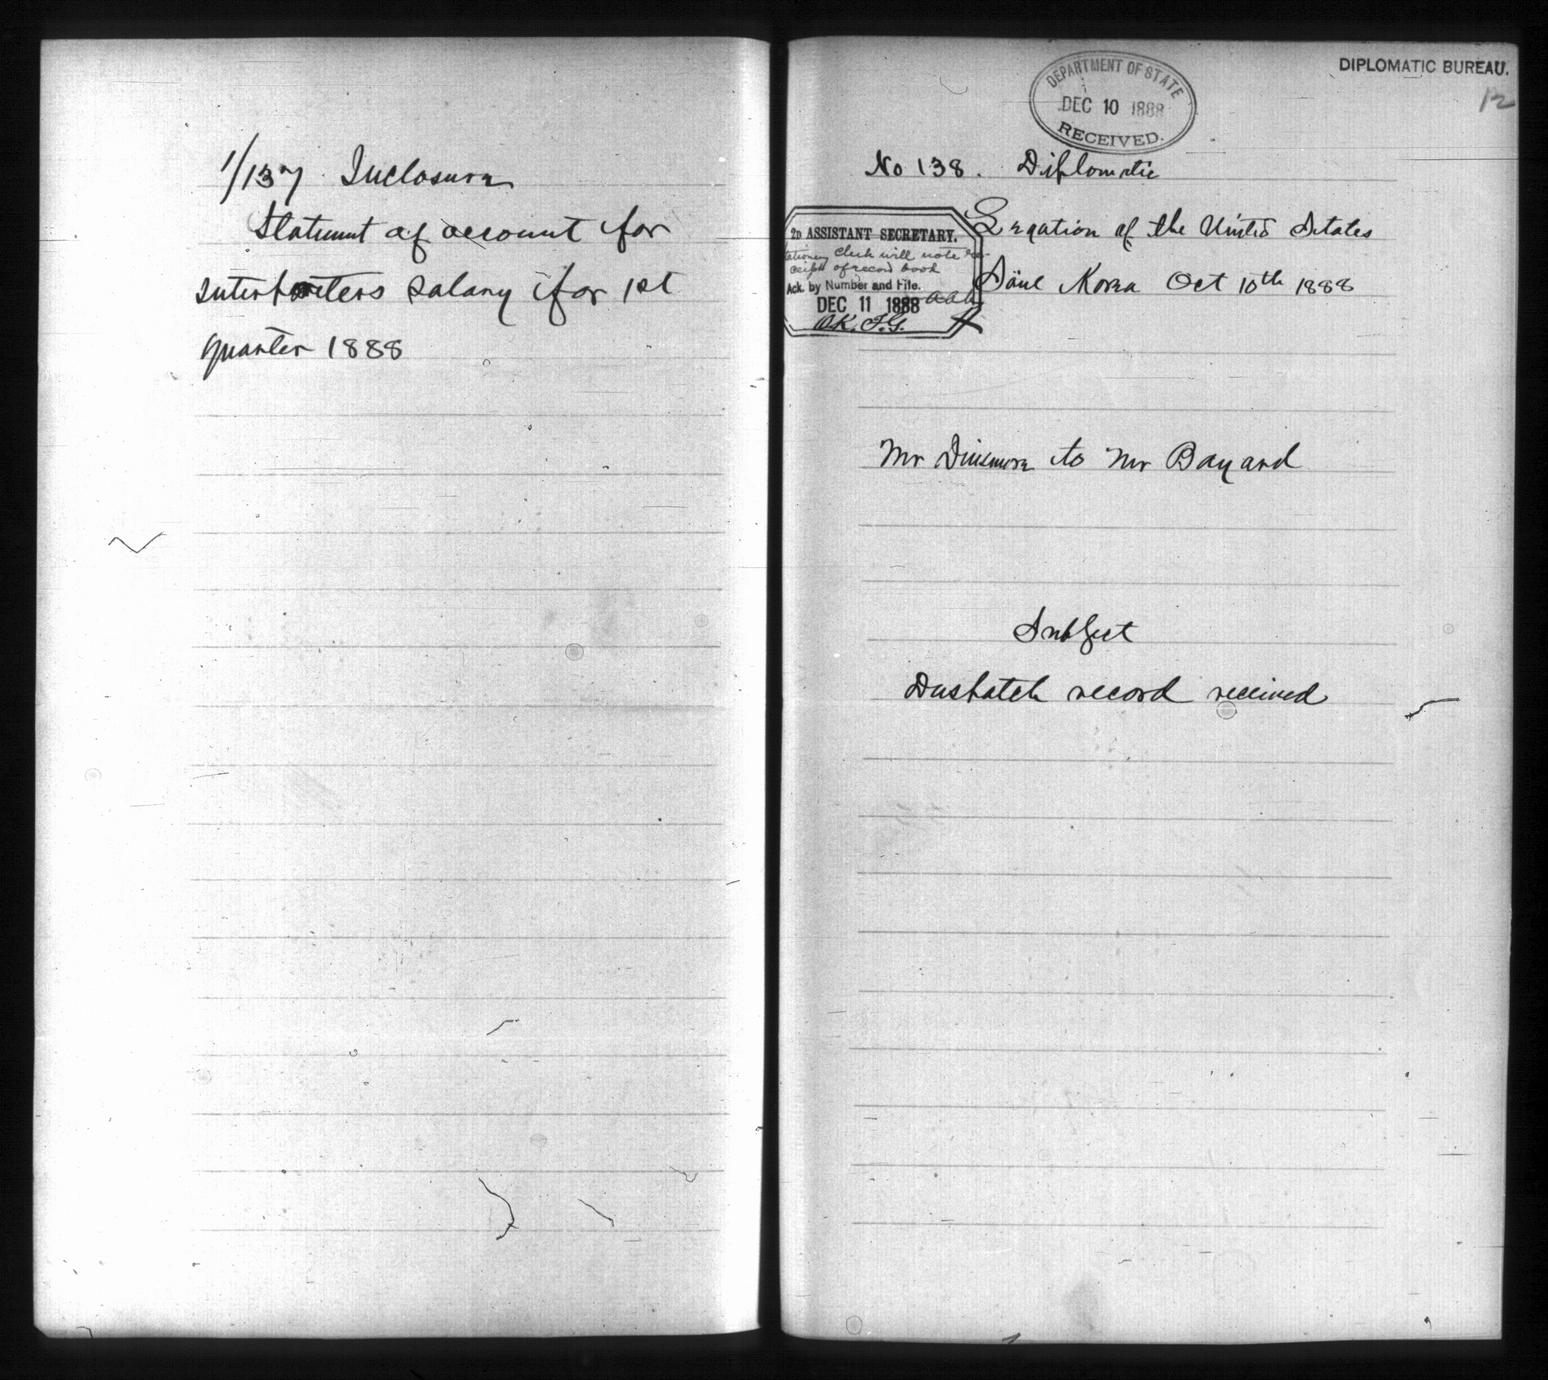 1/137 Inclosure
Statement of account for
interpreters salary for 1st
quarter 1888
DIPLOMATIC BUREAU.
12
DEPARTMENT OF STATE
DEC 10 1888
RECEIVED.
No 138. Diplomatic
Legation of the United States
Söul Korea Oct 10th 1888
2D ASSISTANT SECRETARY.
Stationery Clerk will note re-
ceipt of record book
Ack. by Number and File.
DEC 11 1888 aaa
O.K. F.G.
Mr Dinsmore to Mr Bayard
Subject
Despatch record received